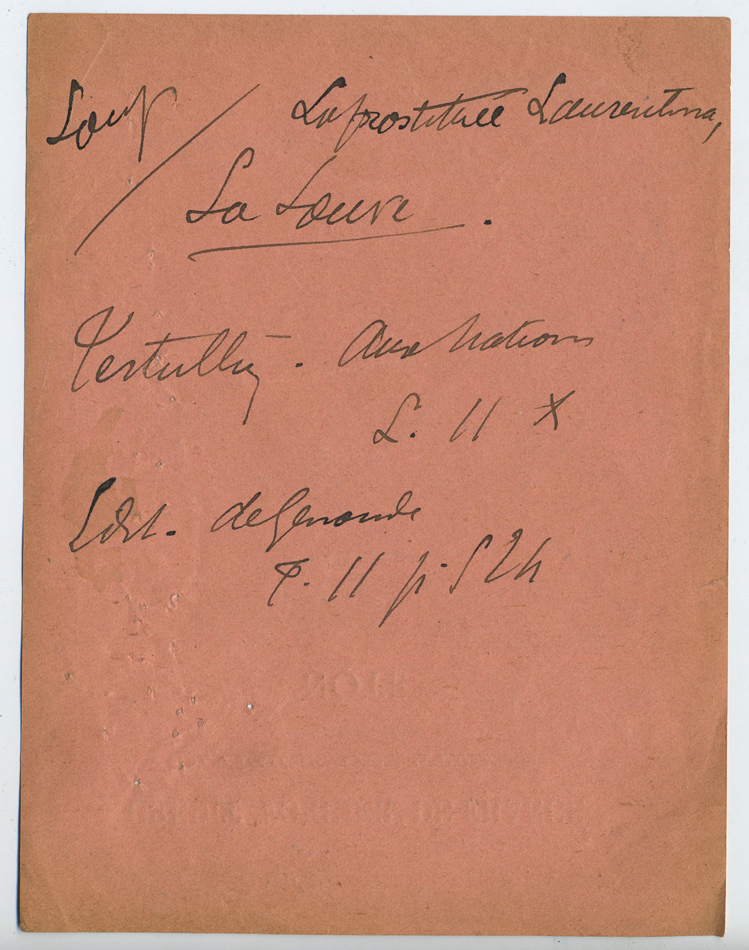 Loup / La prostituée Laurentina,
La Louve.
Tertullien. Aux Nations
L. II X
Edit. de Genoude
T. II p. 524